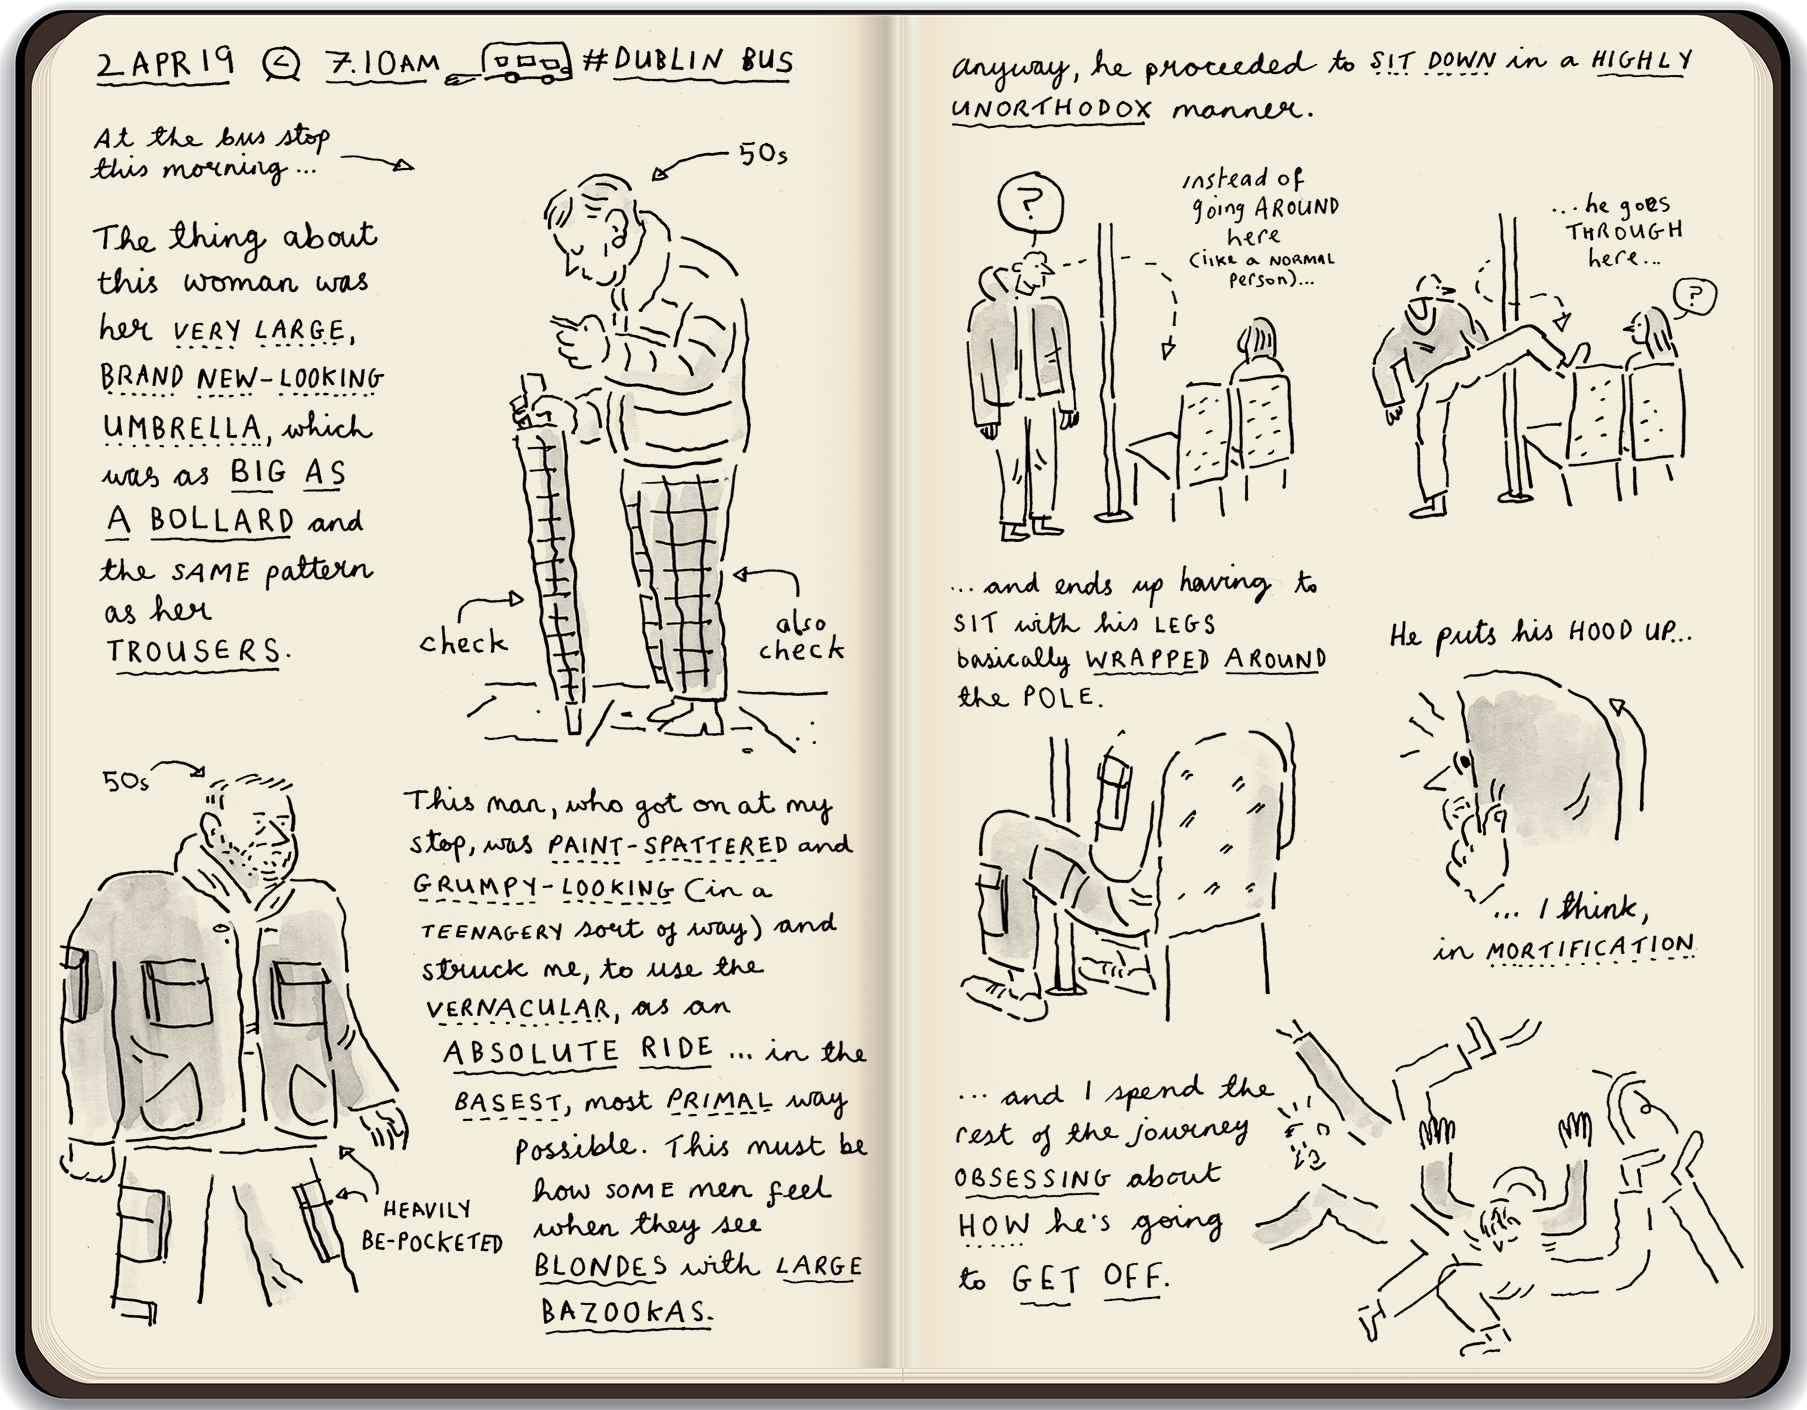 2 APR 19 7.10AM #DUBLIN BUS
At the bus stop
this morning...
50s
The thing about
this woman was
her VERY LARGE,
BRAND NEW-LOOKING
UMBRELLA, which
was as BIG AS
A BOLLARD and
the SAME pattern
as her
TROUSERS.
check
also
check
50s
This man, who got on at my
stop, was PAINT-SPATTERED and
GRUMPY-LOOKING (in a
TEENAGERY sort of way) and
struck me, to use the
VERNACULAR, as an
ABSOLUTE RIDE ... in the
BASEST, most PRIMAL way
possible. This must be
how SOME men feel
when they see
BLONDES with LARGE
BAZOOKAS.
HEAVILY
BE-POCKETED
anyway, he proceeded to SIT DOWN in a HIGHLY
UNORTHODOX manner.
?
instead of
going AROUND
here
(like a NORMAL
person)...
...he goes
THROUGH
here...
?
...and ends up having to
SIT with his LEGS
basically WRAPPED AROUND
the POLE.
He puts his HOOD UP...
... I think,
in MORTIFICATION
... and I spend the
rest of the journey
OBSESSING about
HOW he's going
to GET OFF.